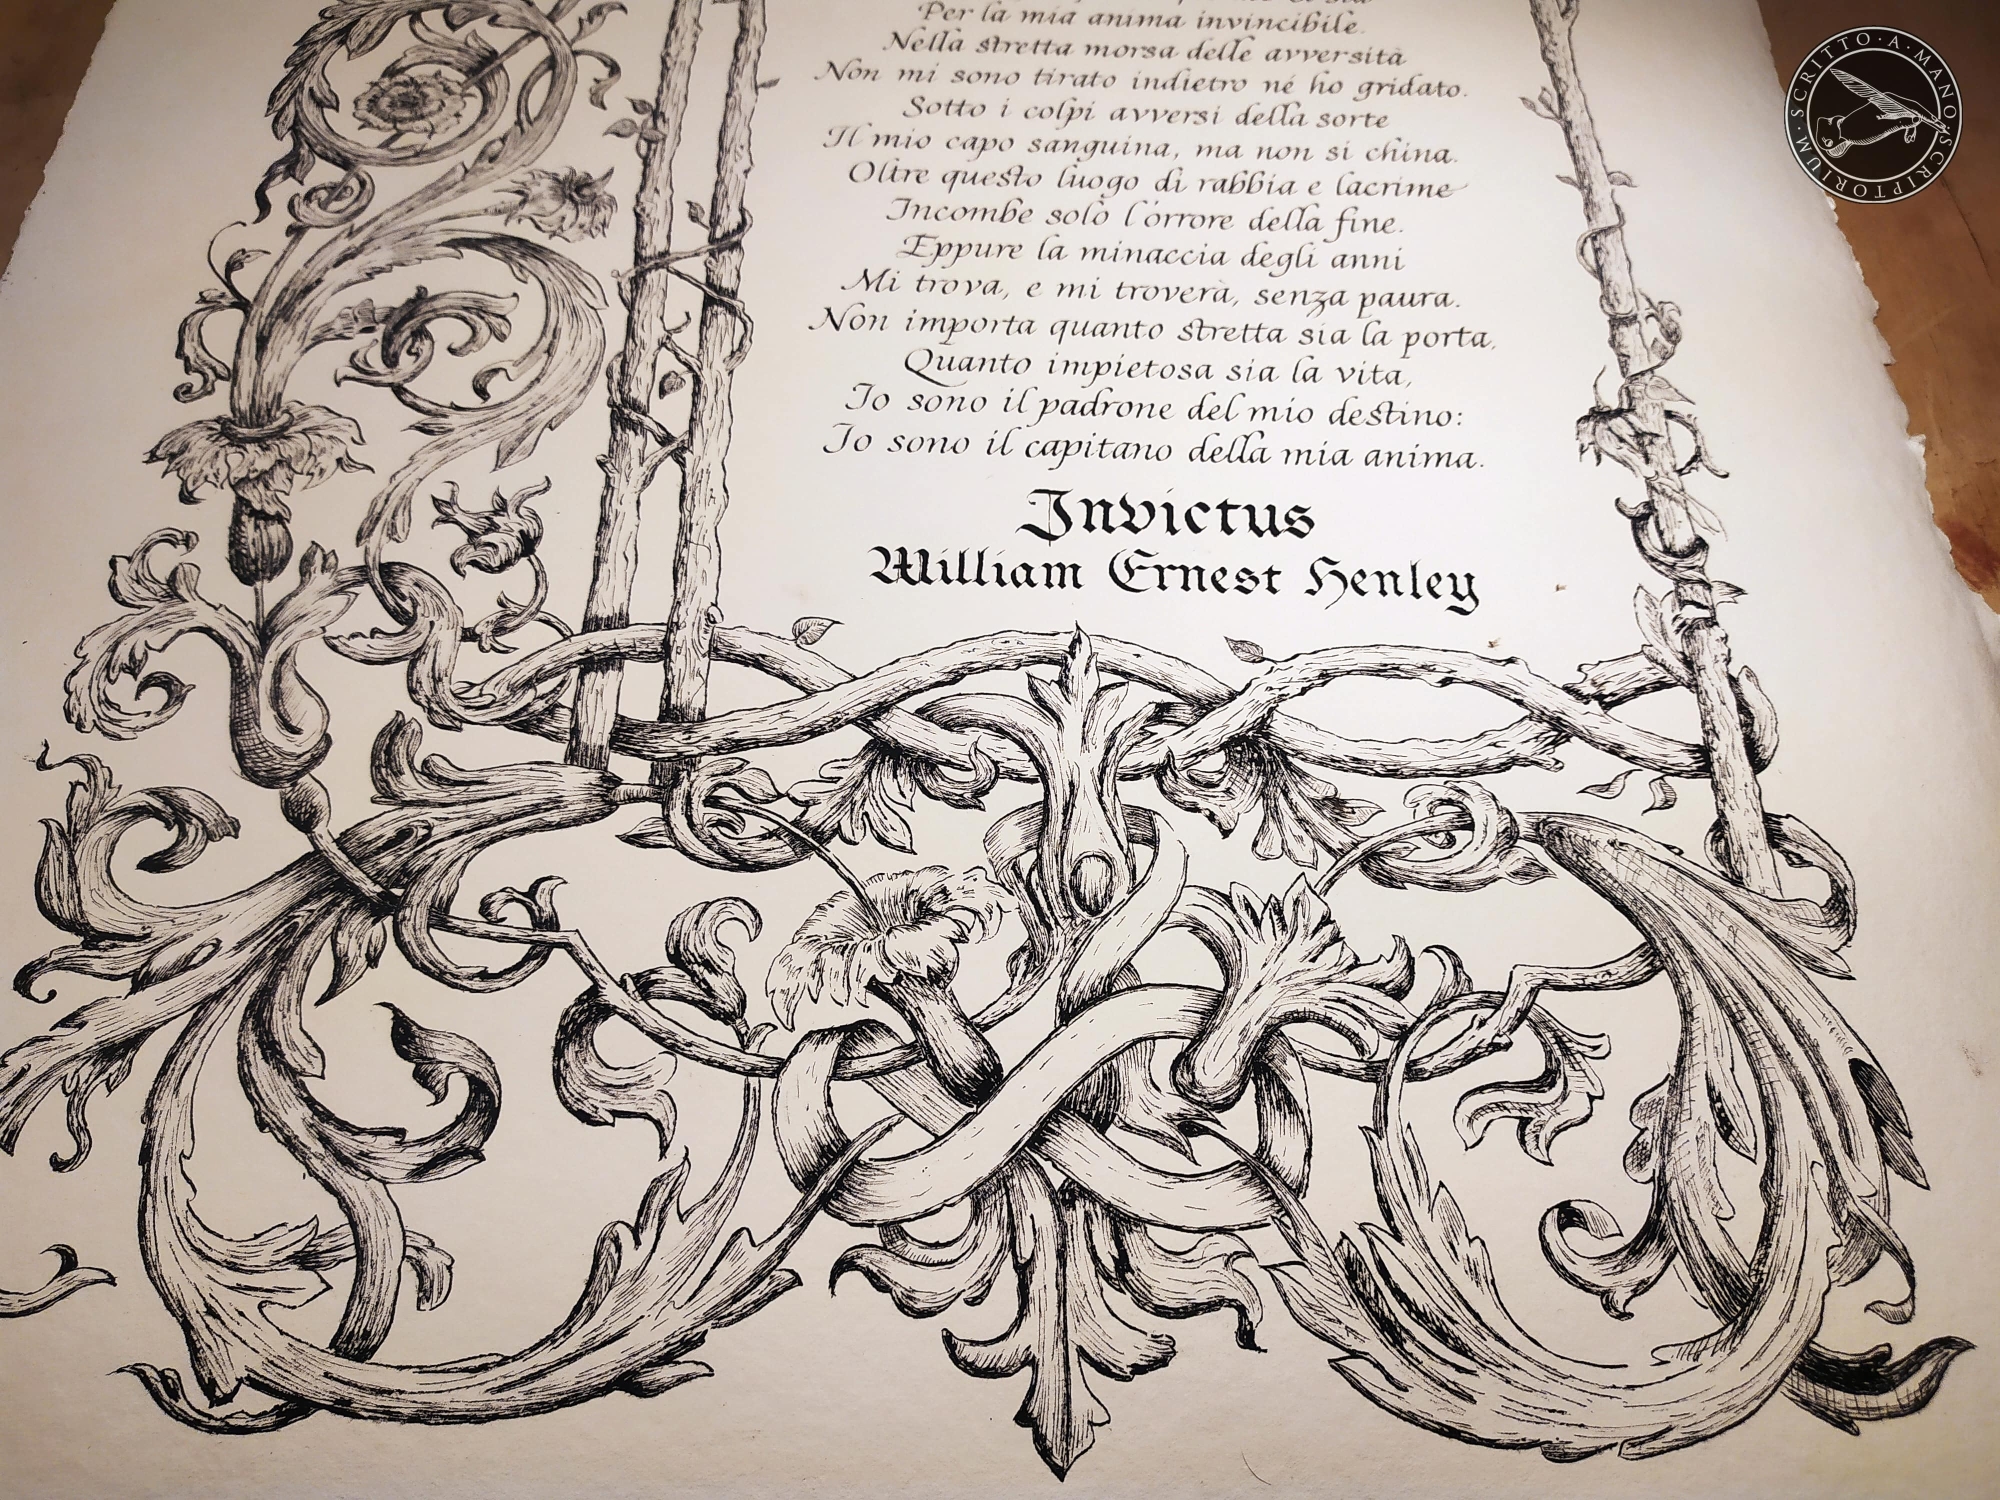 Per la mia anima invincibile.
Nella stretta morsa delle avversità
Non mi sono tirato indietro né ho gridato.
Sotto i colpi avversi della sorte
Il mio capo sanguina, ma non si china.
Oltre questo luogo di rabbia e lacrime
Incombe solo l'orrore della fine.
Eppure la minaccia degli anni
Mi trova, e mi troverà, senza paura.
Non importa quanto stretta sia la porta,
Quanto impietosa sia la vita,
Io sono il padrone del mio destino:
Io sono il capitano della mia anima.
Invictus
William Ernest Henley
SCRITTO·A·MANO·SCRIPTORIUM·